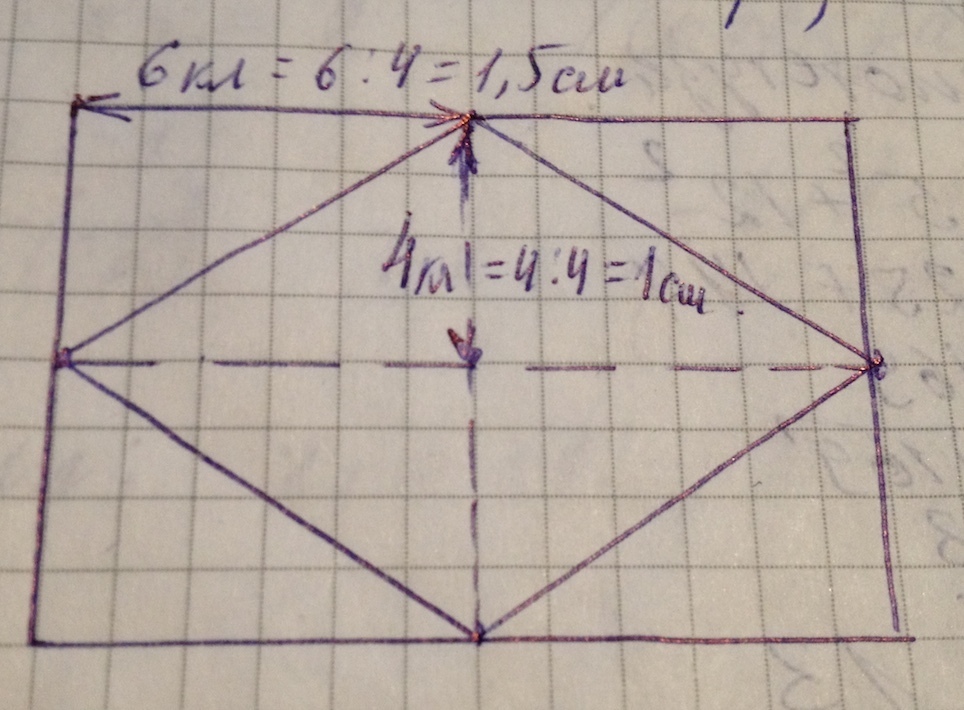 6 кл = 6 : 4 = 1,5 см
4 кл = 4 : 4 = 1 см.